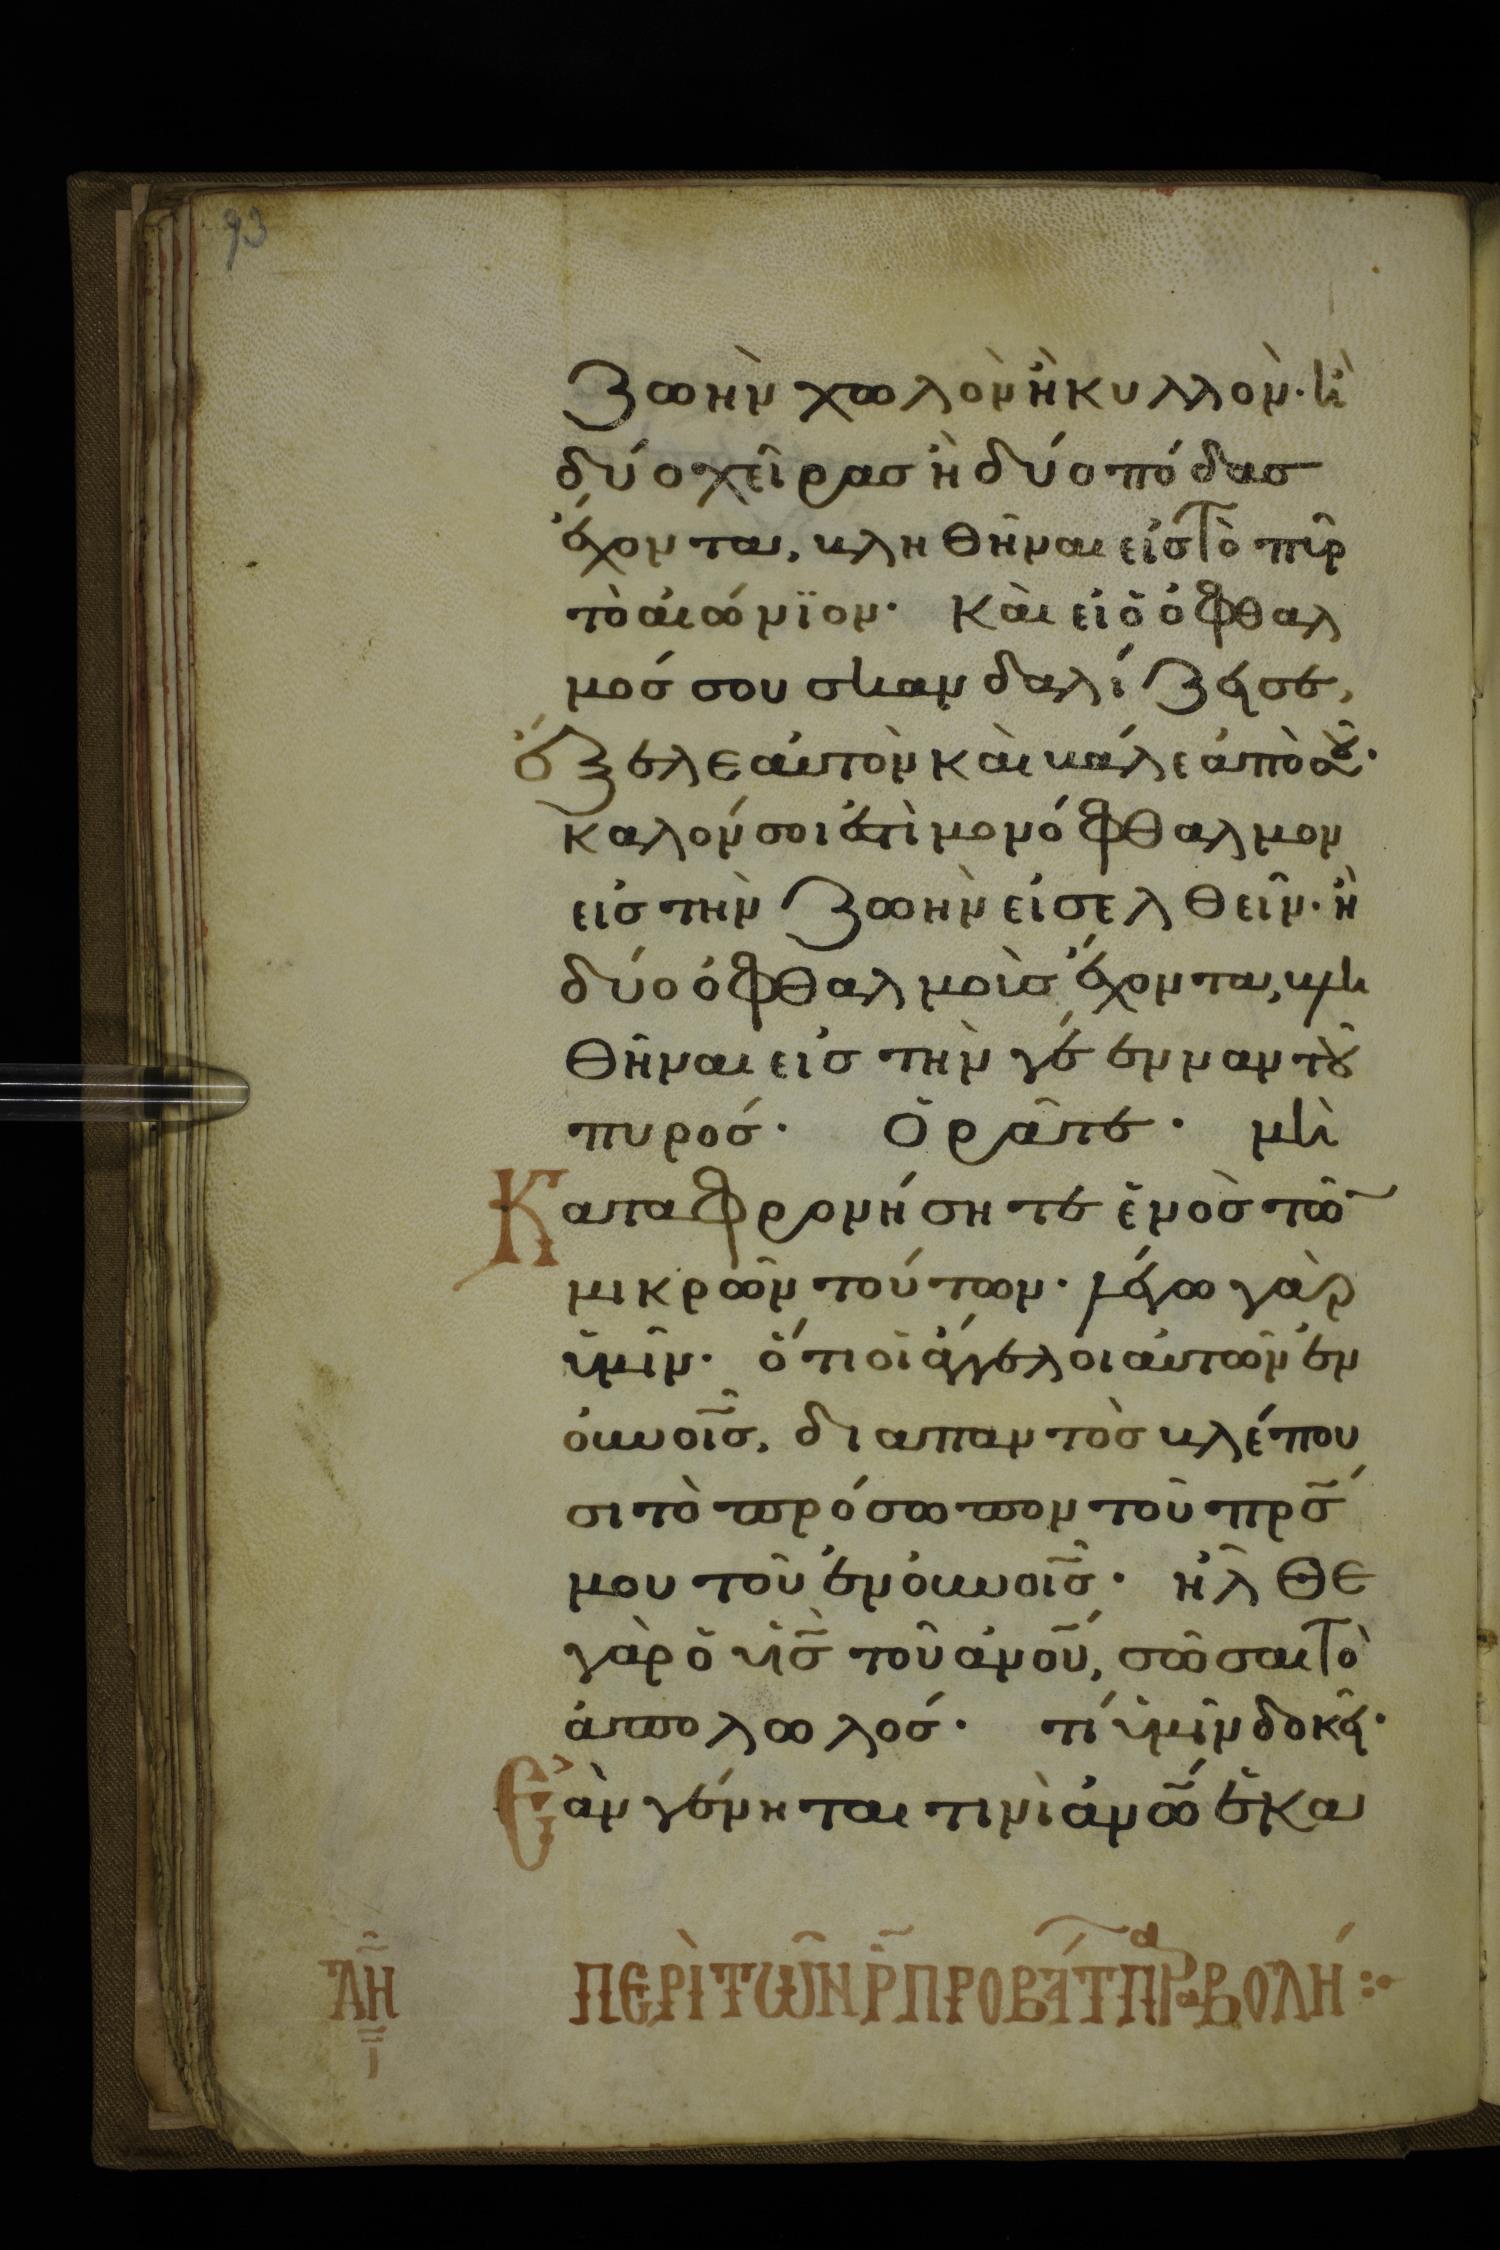 93
ζωὴν χωλὸν ἢ κυλλὸν· ἢ
δύο χεῖρας ἢ δύο πόδας
ἔχοντα, βληθῆναι εἰς τὸ πῦρ
τὸ αἰώνϊον· Καὶ εἰ ὁ ὀφθαλ
μός σου σκανδαλίζει σε,
ἔξελε αὐτὸν καὶ βάλε ἀπὸ σοῦ·
καλόν σοι ἐστὶ μονόφθαλμον
εἰς τὴν ζωὴν εἰσελθεῖν· ἢ
δύο ὀφθαλμοὺς ἔχοντα, βλη
θῆναι εἰς τὴν γέενναν τοῦ
πυρός· Ὁρᾶτε· μὴ
Καταφρονήσητε ἑνὸς τῶ
μικρῶν τούτων· λέγω γὰρ
ὑμῖν· ὅτι οἱ ἄγγελοι αὐτῶν ἐν
οὐνοῖς, διαπαντὸς βλέπου
σι τὸ πρόσωπον τοῦ πρς
μου τοῦ ἐν οὐνοῖς· ἦλθε
γὰρ ὁ υἱς τοῦ ἀνου, σῶσαι τὸ
ἀπολωλός· τί ὑμῖν δοκεῖ·
Ἐὰν γένηται τινὶ ἀνω ἑκα
ΛΗ ΠΕΡῚ ΤΩ͂Ν Ρ ΠΡΟΒΆΤ ΠΑΡΑΒΟΛΉ